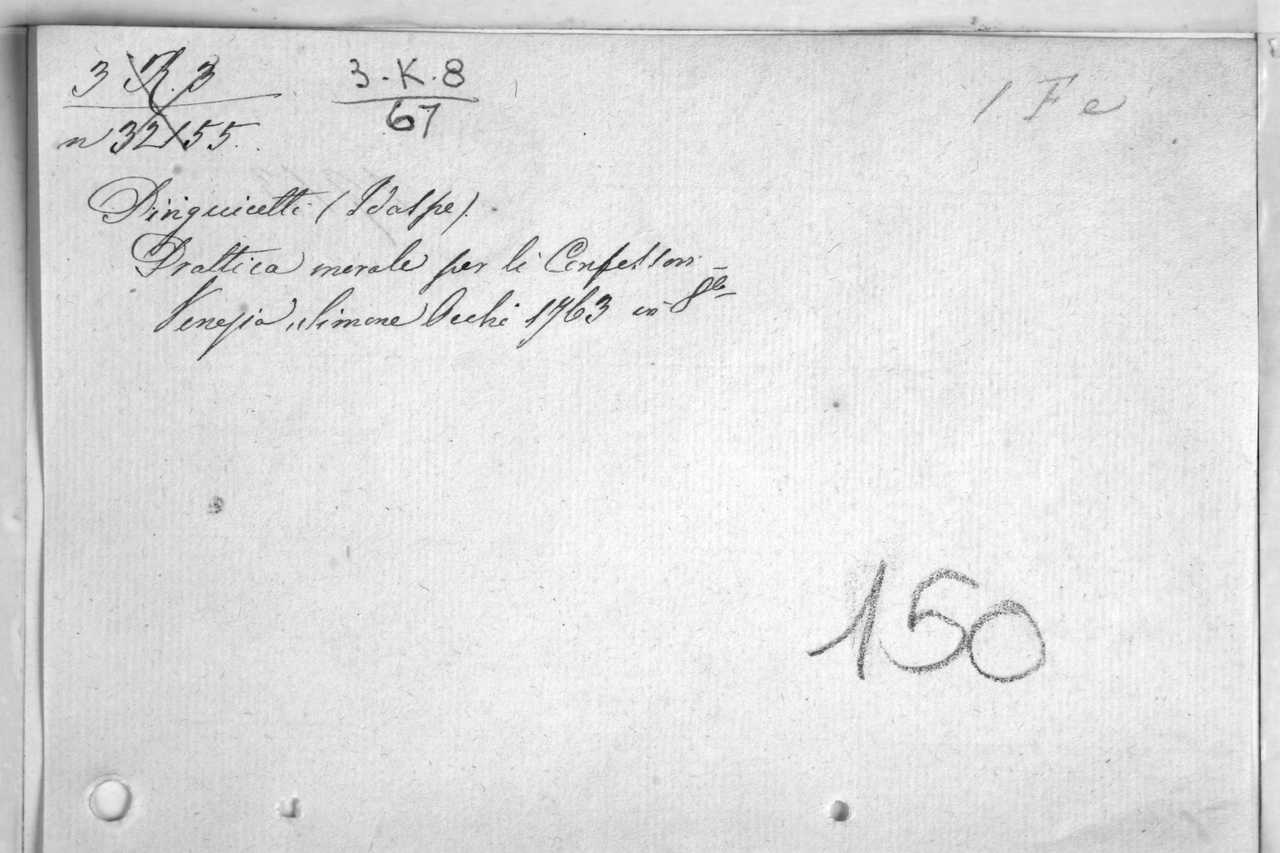 3 R. 3
n 32155.
3.K.8
67
1. Fe
(Idalpe)
Prattica morale per li Confessori
Venezia, Simone Occhi 1763 in 8vo
150